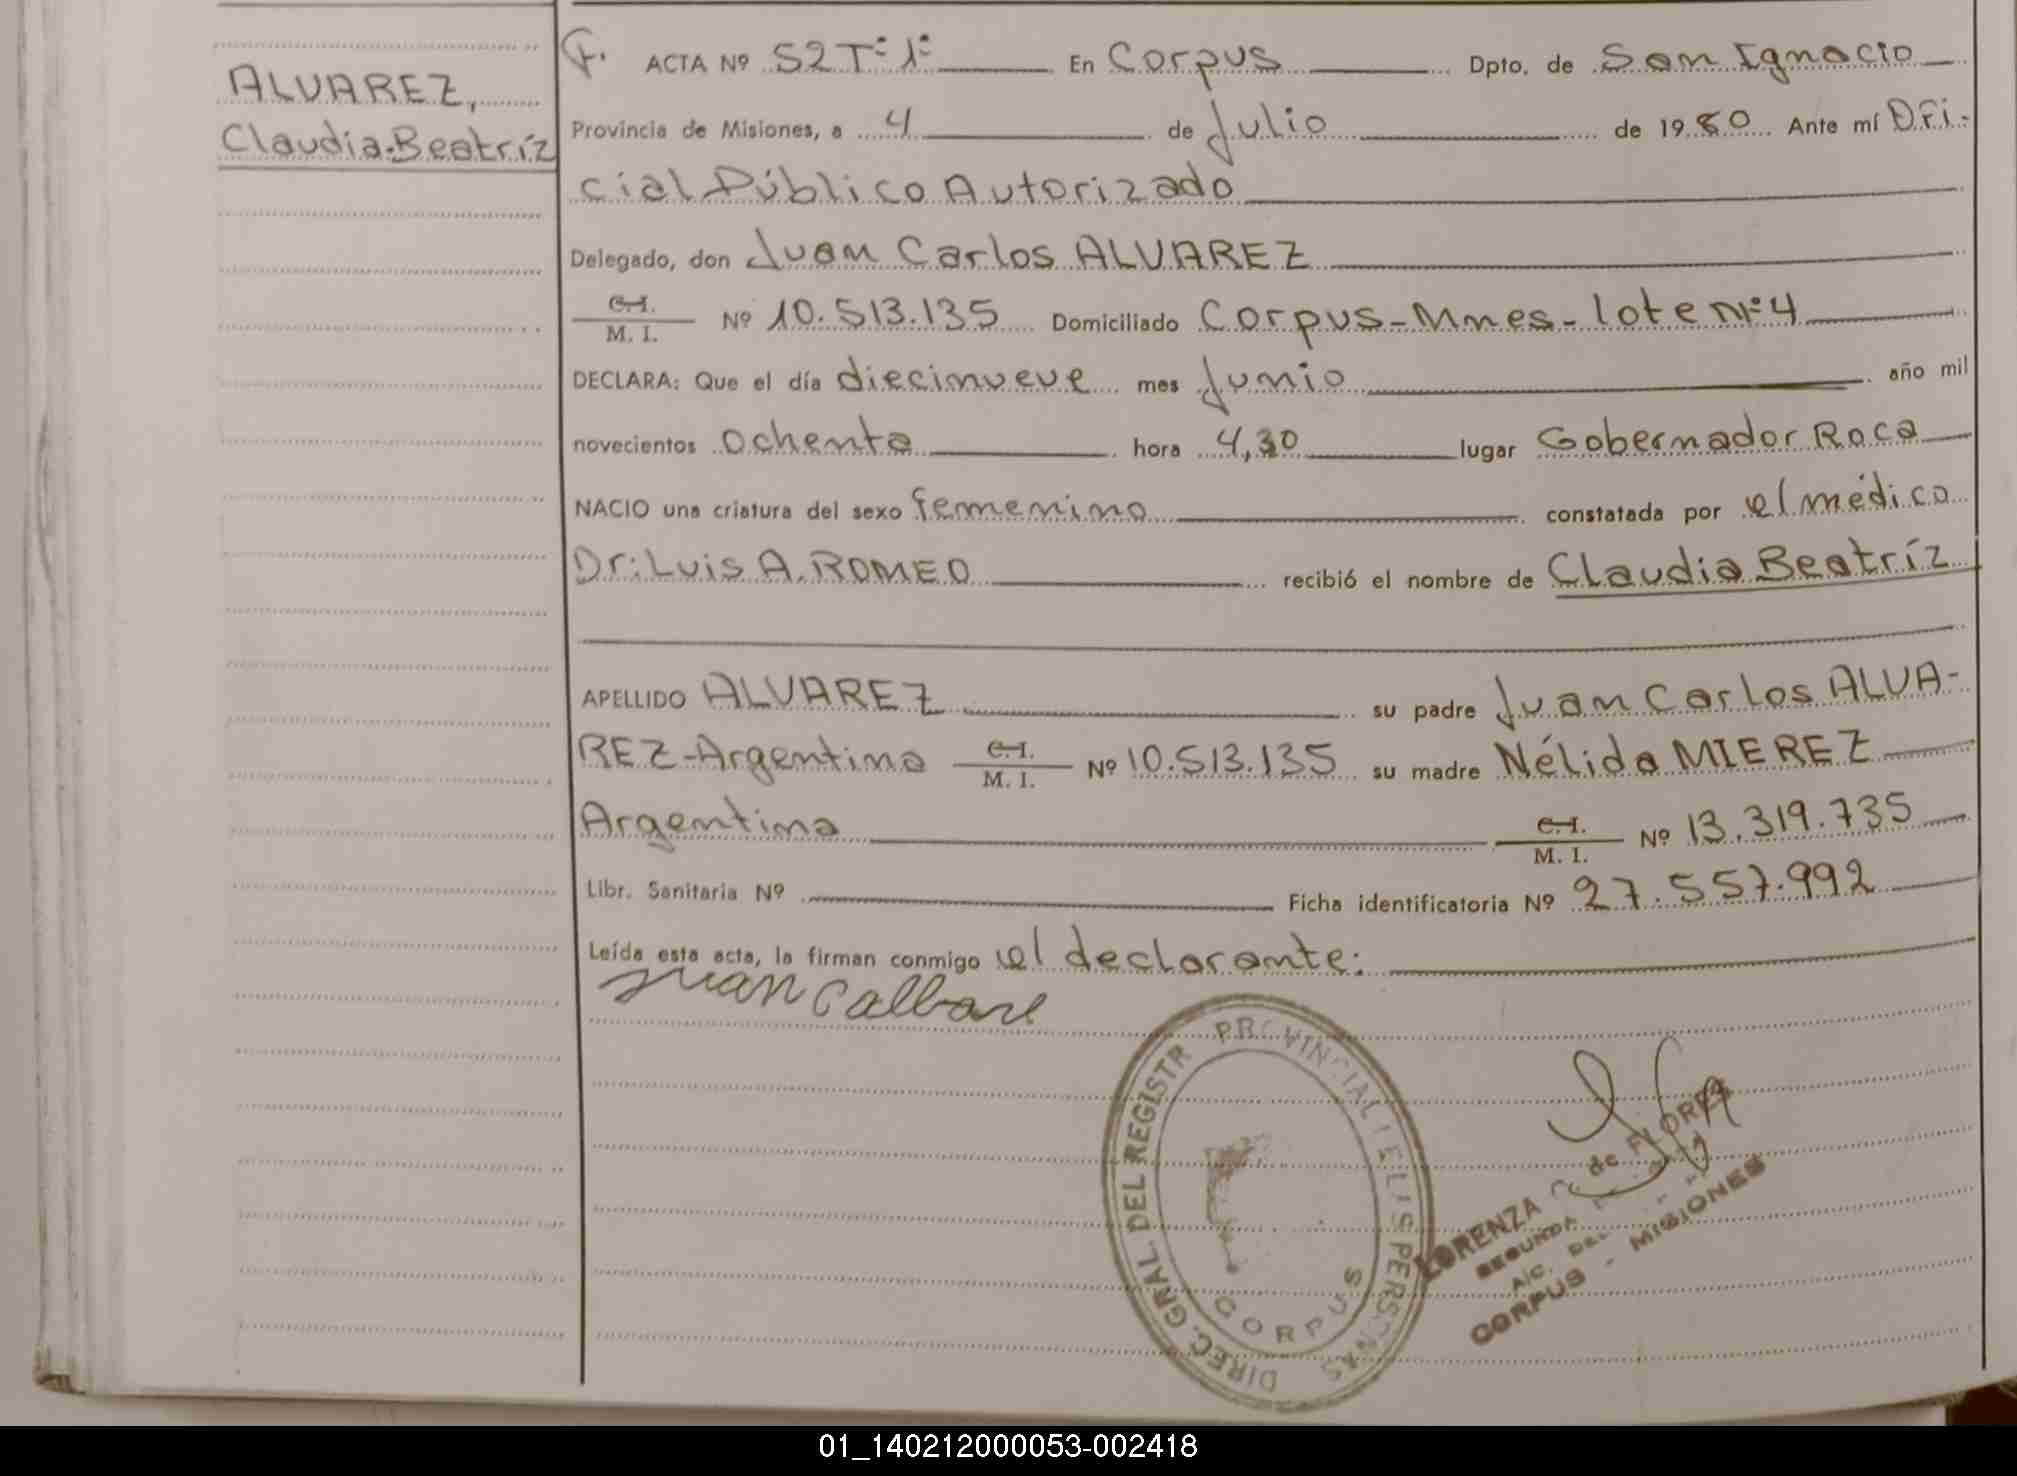 ALVAREZ,
Claudia Beatríz
F. ACTA Nº 52 Tº 1º En Corpus Dpto. de San Ignacio
Provincia de Misiones, a 4 de Julio de 1980 Ante mí Ofi-
cial Público Autorizado
Delegado, don Juan Carlos ALVAREZ
C.I.
M. I. Nº 10.513.135 Domiciliado Corpus-Mnes-lote nº 4
DECLARA: Que el día diecinueve mes Junio año mil
novecientos ochenta hora 4,30 lugar Gobernador Roca
NACIO una criatura del sexo femenino constatada por el médico
Dr: Luis A. ROMEO recibió el nombre de Claudia Beatríz
APELLIDO ALVAREZ su padre Juan Carlos ALVA-
REZ-Argentino C.I. M. I. Nº 10.513.135 su madre Nélida MIEREZ
Argentina C.I. M. I. Nº 13.319.735
Libr. Sanitaria Nº Ficha identificatoria Nº 27.557.992
Leída esta acta, la firman conmigo el declarante:
Juan C albare
DIREC. GRAL. DEL REGISTR PROVINCIAL DE LAS PERSONAS
CORPUS
LORENZA de FLORES
SEGUNDA
A/C. DEL
CORPUS - MISIONES
01_140212000053-002418